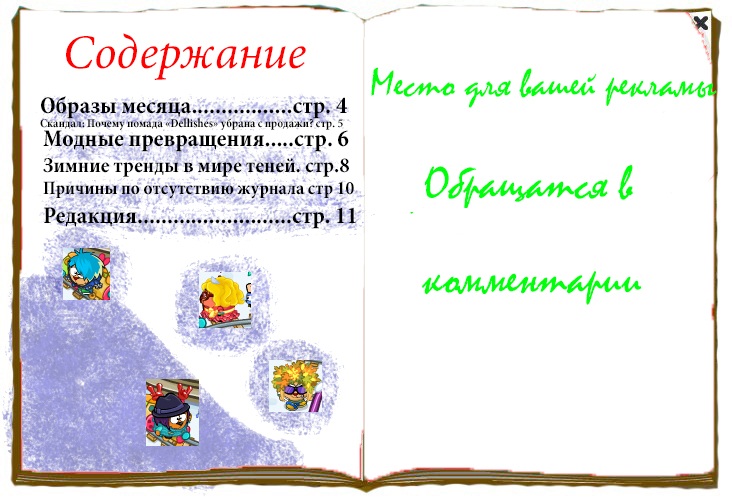 Содержание
Образы месяца.................стр. 4
Скандал: Почему помада «Dellishes» убрана с продажи? стр. 5
Модные превращения.....стр. 6
Зимние тренды в мире теней. стр.8
Причины по отсутствию журнала стр 10
Редакция..........................стр. 11
Место для вашей рекламы
Обращатся в
комментарии